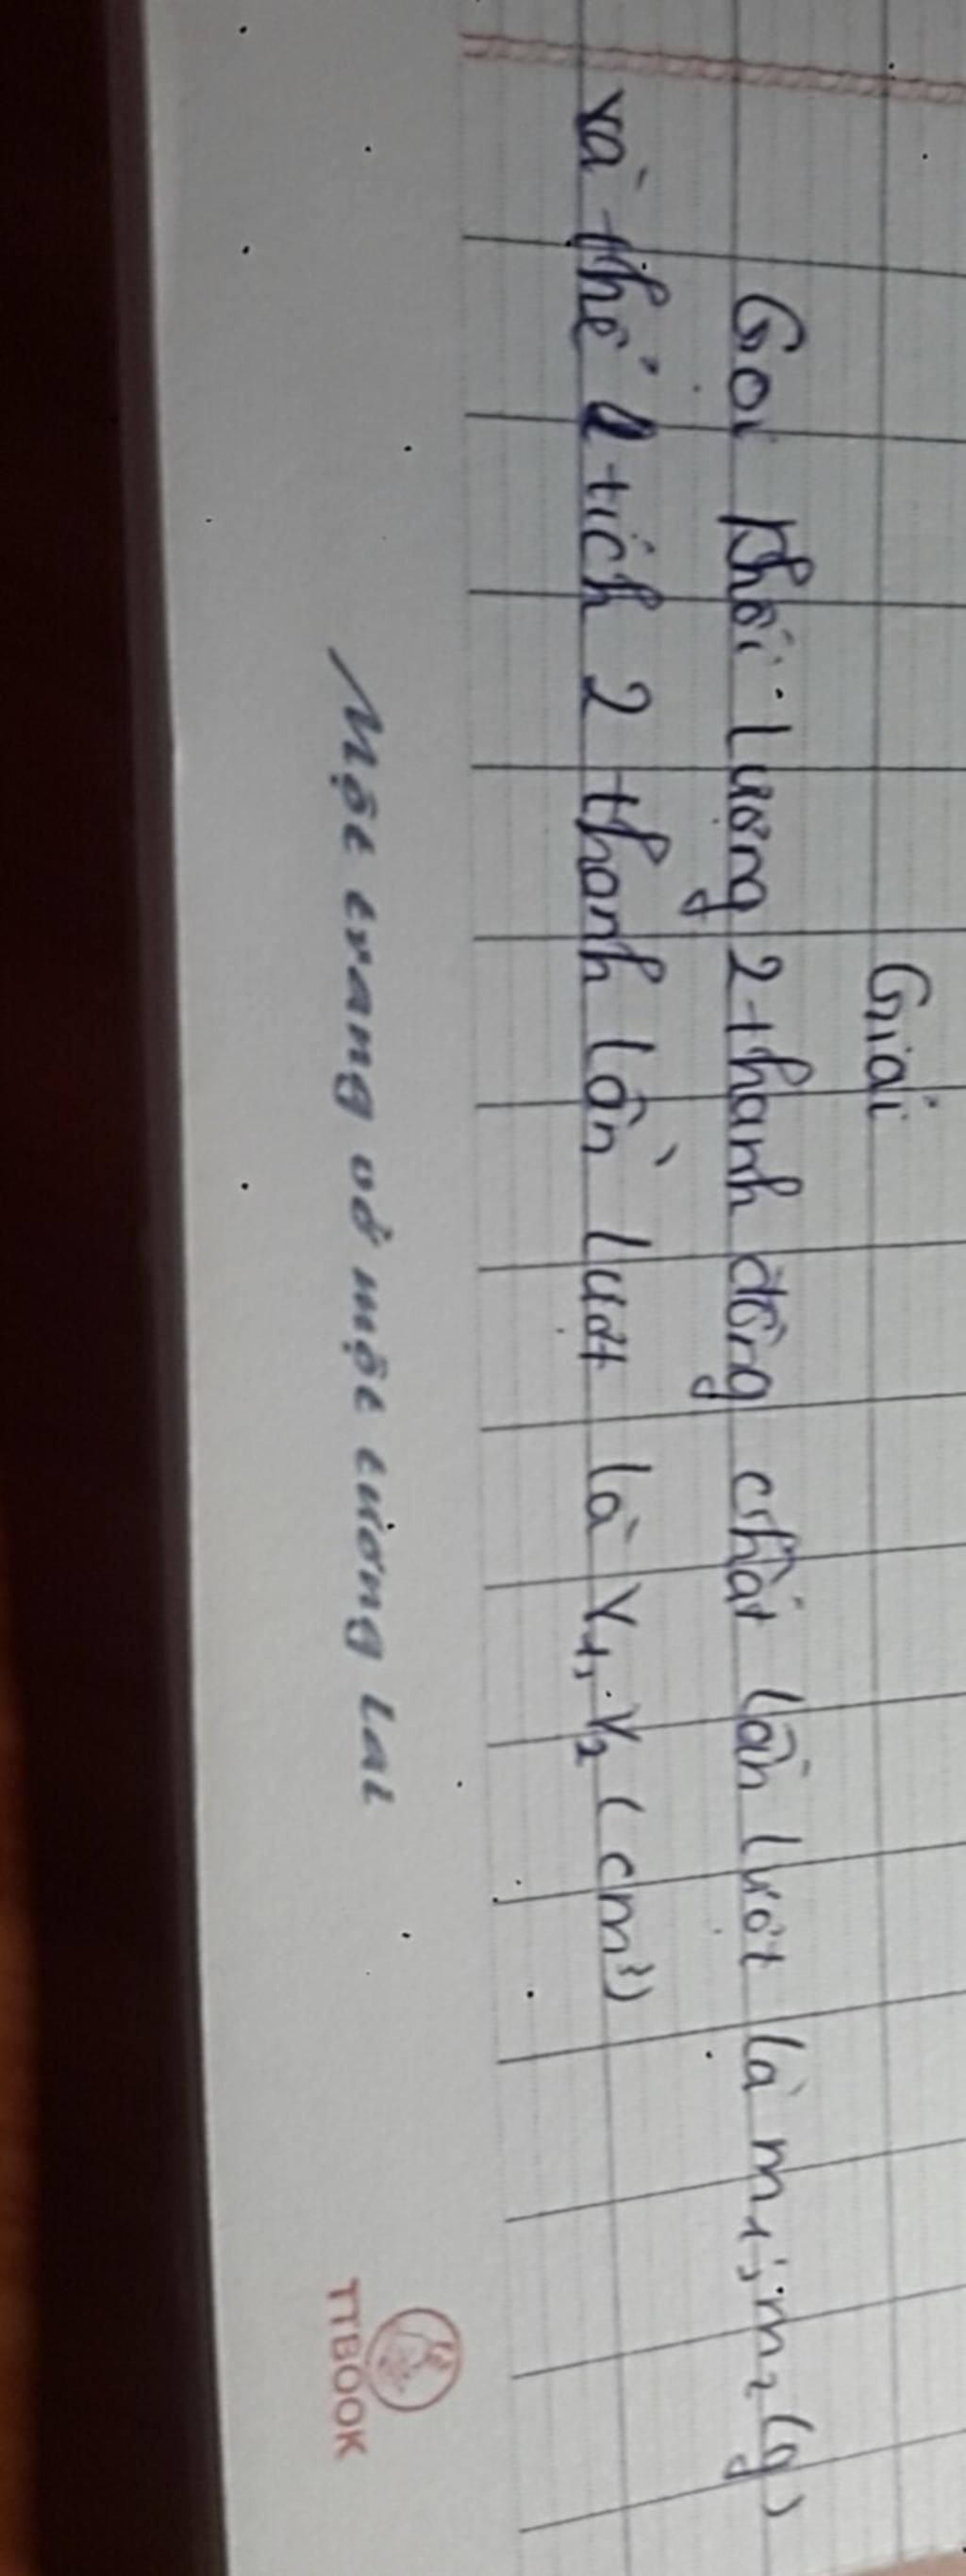 Giải
Gọi khối lượng 2 thanh đồng chất lần lượt là m₁, m₂ (g)
và thể tích 2 thanh lần lượt là V₁, V₂ (cm³)
Một trang vở một tương lai
TTBOOK